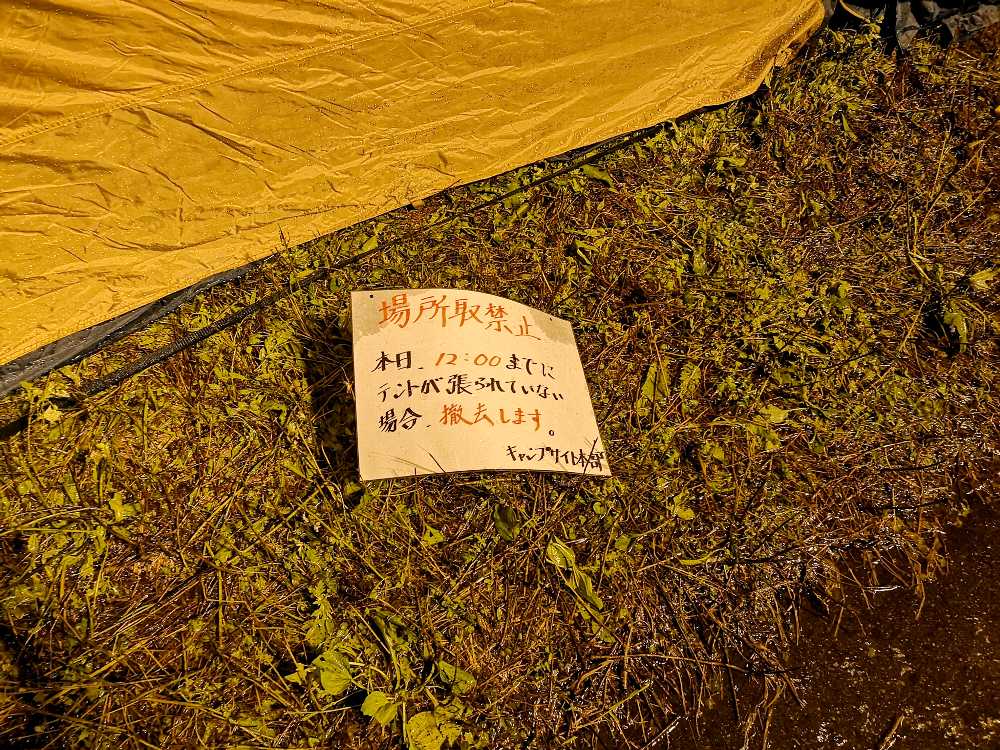 場所取禁止
本日、12:00までに
テントが張られていない
場合、撤去します。
キャンプサイト本部